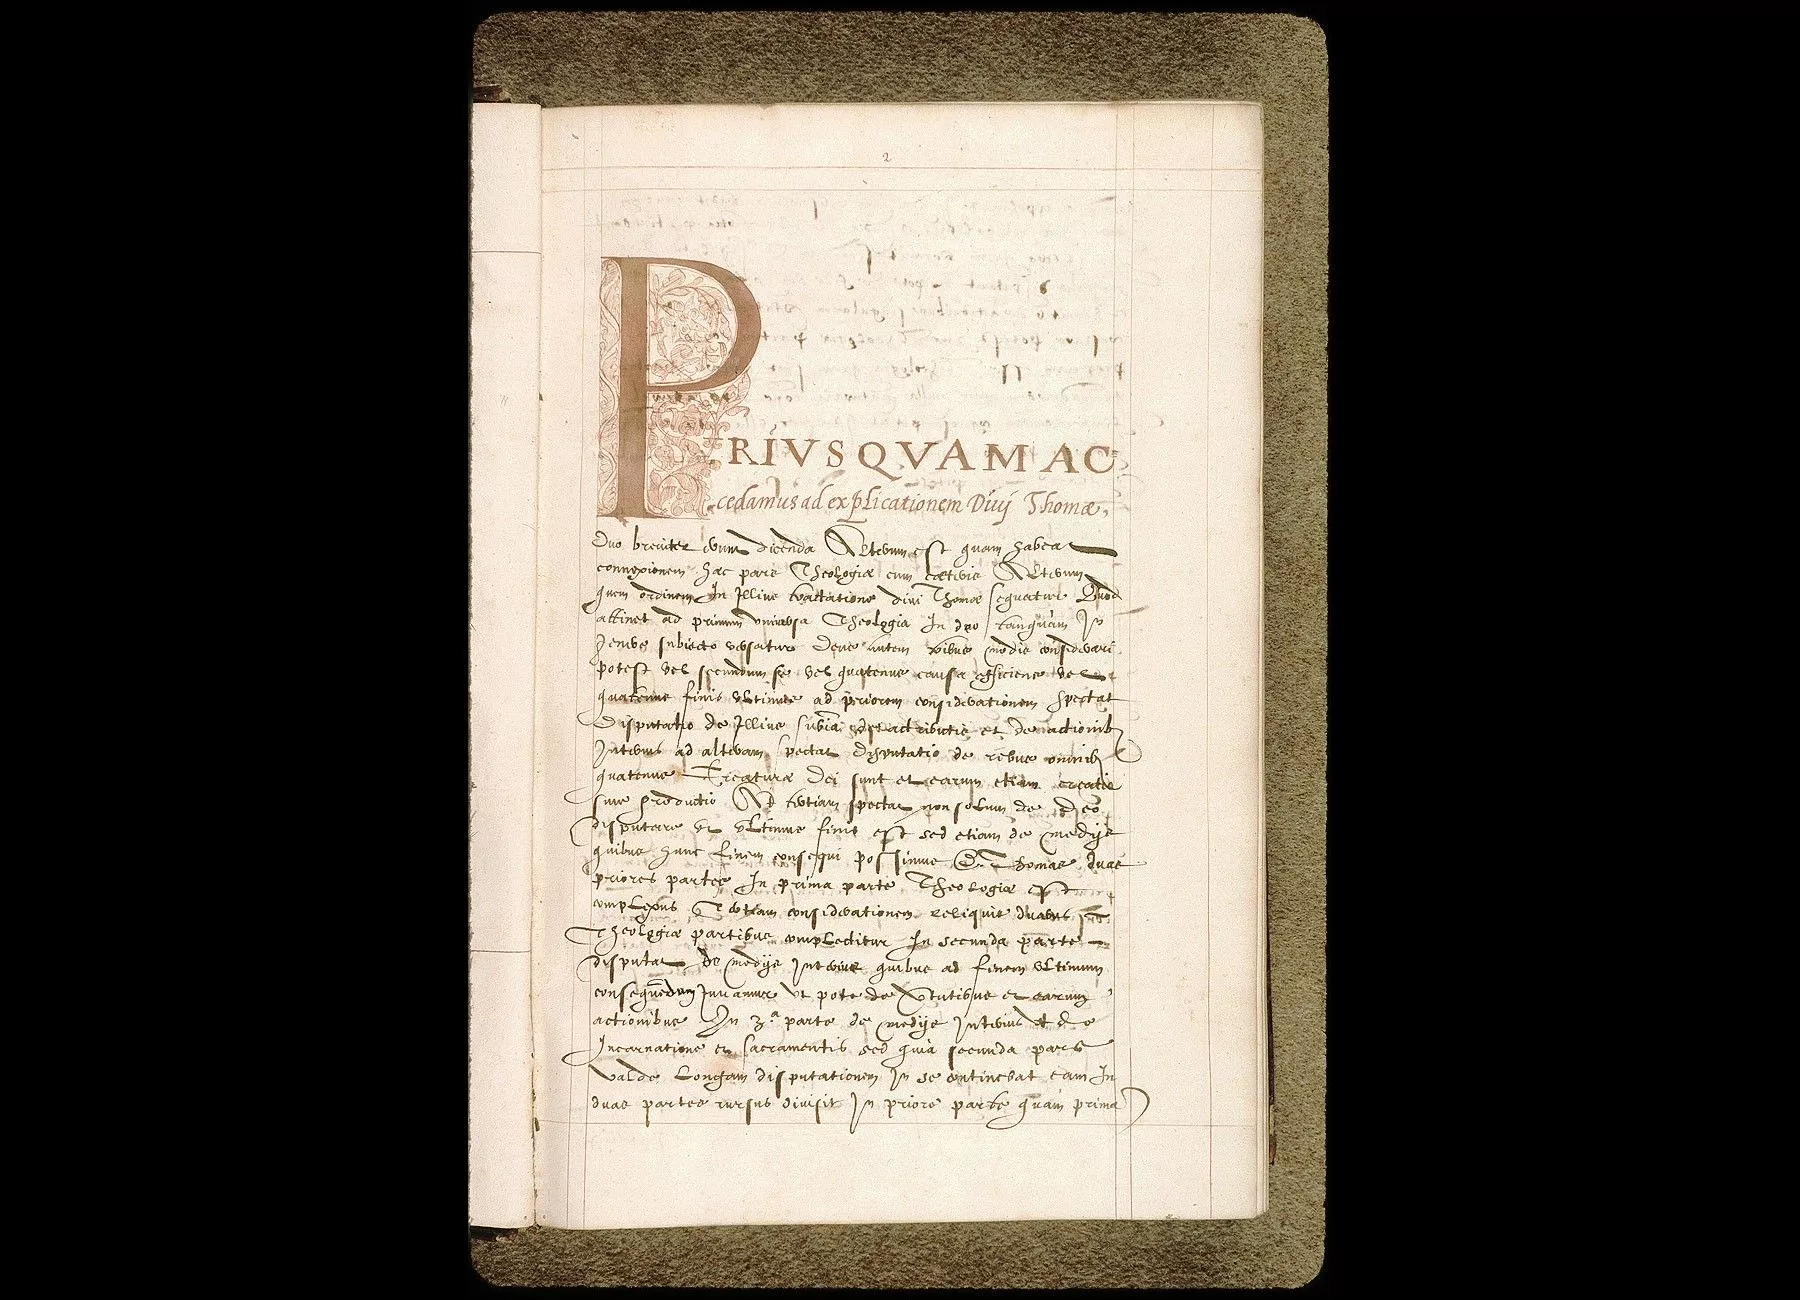 2
PRIVSQVAM AC
cedamus ad explicationem Diuij Thomæ,
Duo breuiter sunt dicenda Alterum est quam habeat
connexionem hæc pars Theologiæ cum cæteris Alterum
quem ordinem In Illius tractatione diui Thomæ sequatur Quod
attinet ad primum vniuersa Theologia In deo tanquam In
genere subiecto versatur Deus autem tribus modis considerari
potest vel secundum se vel quatenus causa efficiens vel
quatenus finis vltimus ad priorem considerationem spectat
Disputatio de Illius et de attributis et de actionib
Internis ad alteram spectat disputatio de rebus omnib
quatenus Creaturæ Dei sunt et earum etiam creatis
siue productio Ad tertiam spectat non solum de deo
disputare vt vltimus finis est sed etiam de medijs
quibus hunc finem consequi possimus D. Thomas duas
priores partes In prima parte Theologiæ est
complexus Tertiam considerationem reliquis duabus
Theologiæ partibus complectitur In secunda parte
disputat de medijs Internis quibus ad finem vltimum
consequendum Iuuamur vt pote de virtutibus et earum
actionibus In 3.ª parte de medijs et de
Incarnatione et sacramentis sed quia secunda pars
valde longam disputationem In se continebat eam In
duas partes rursus diuisit In priore parte quam prima